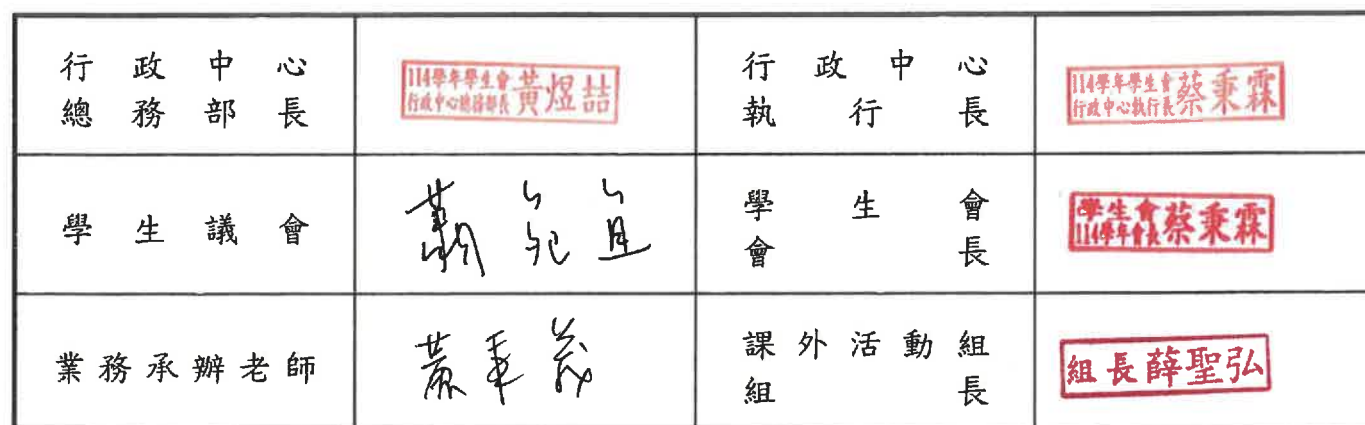 行政中心
總務部長
114學年學生會
行政中心總務部長
黃煜喆
行政中心
執行長
114學年學生會
行政中心執行長
蔡秉霖
學生議會
學生會
會長
學生會
114學年會長
蔡秉霖
業務承辦老師
課外活動組
組長
組長薛聖弘